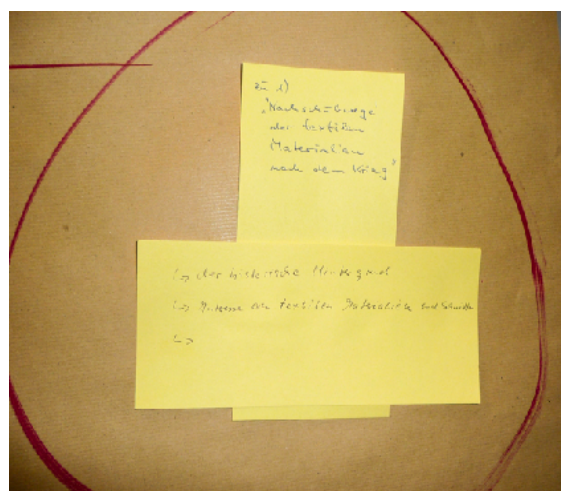 zu 1)
"Nachschübe
der textilen
Materialien
nach dem Krieg"
↳ der historische Hintergrund
↳ Interesse an textilen Materialien und
↳